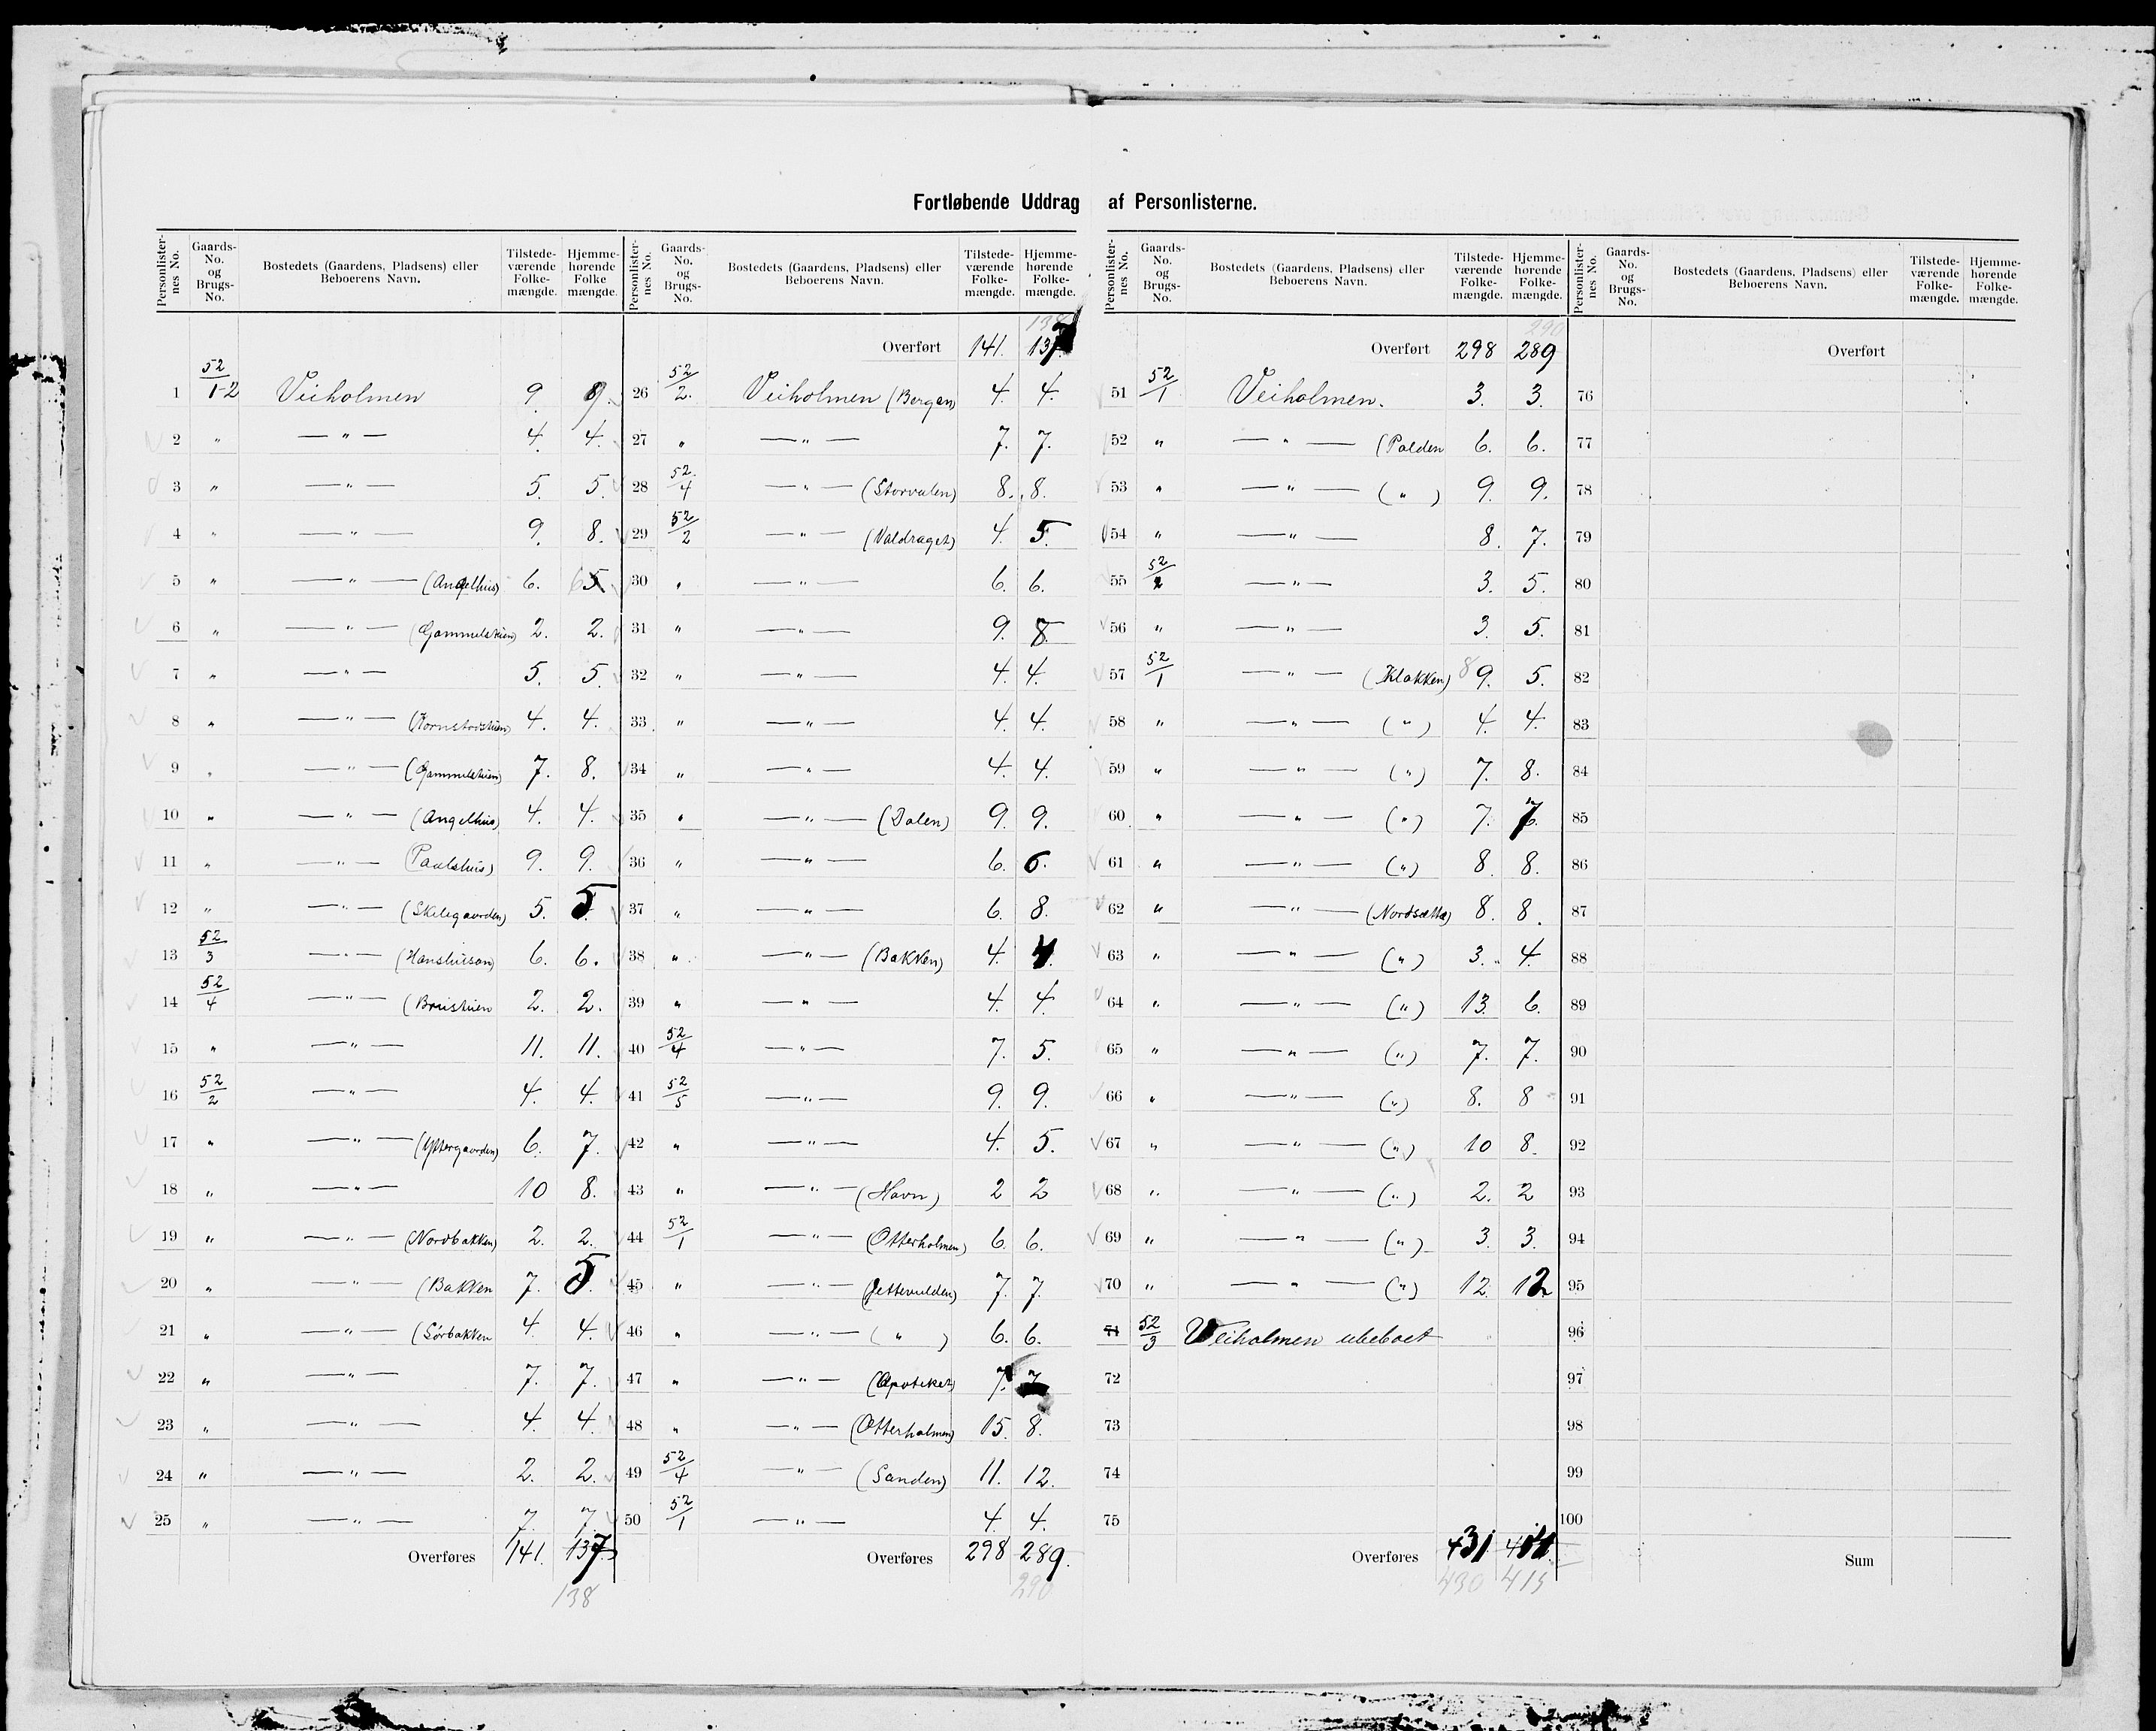 Fortløbende Uddrag af Personlisterne.
Personlisternes No. | Gaards-No. og Brugs-No. | Bostedets (Gaardens, Pladsens) eller Beboerens Navn. | Tilstedeværende Folkemængde. | Hjemmehørende Folkemængde.
1 52/1-2 Veiholmen 9. 9.
2 " — " — 4. 4.
3 " — " — 5. 5.
4 " — " — 9. 8.
5 " — " — (Angelhus) 6. 6 5
6 " — " — (Gammelstuen) 2. 2.
7 " — " — 5. 5.
8 " — " — 4. 4.
9 " — " — (Gammelstuen) 7. 8.
10 " — " — (Angelhus) 4. 4.
11 " — " — (Paulshus) 9. 9.
12 " — " — (Skilegaarden) 5. 5.
13 52/3 — " — 6. 6.
14 52/4 — " — 2. 2.
15 " — " — 11. 11.
16 52/2 — " — 4. 4.
17 " — " — (Yttergaarden) 6. 7.
18 " — " — 10 8.
19 " — " — (Nordbakken) 2. 2.
20 " — " — (Bakken 7. 5.
21 " — " — (Sørbakken 4. 4.
22 " — " — 7. 7.
23 " — " — 4. 4.
24 " — " — 2. 2.
25 " — " — 7. 7.
Overføres 141. 137
138
Personlisternes No. | Gaards-No. og Brugs-No. | Bostedets (Gaardens, Pladsens) eller Beboerens Navn. | Tilstedeværende Folkemængde. | Hjemmehørende Folkemængde.
138
Overført 141. 137
26 52/2. Veiholmen (Bergan) 4. 4.
27 " — " — 7. 7.
28 52/4 — " — (Storvalen) 8. 8.
29 52/2 — " — (Valdraget) 4. 5.
30 " — " — 6. 6.
31 " — " — 9. 8.
32 " — " — 4. 4.
33 " — " — 4. 4.
34 " — " — 4. 4.
35 " — " — (Dalen) 9. 9.
36 " — " — 6. 6.
37 " — " — 6. 8.
38 " — " — (Bakken) 4. 4.
39 " — " — 4. 4.
40 52/4 — " — 7. 5.
41 52/5 — " — 9. 9.
42 " — " — 4. 5.
43 " — " — (Havn) 2 2
44 52/1 — " — (Otterholmen) 6. 6.
45 " — " — (Jettevulden) 7. 7.
46 " — " — ( " ) 6. 6.
47 " — " — (Apoteket) 7. 7
48 " — " — (Otterholmen) 15. 8.
49 52/4 — " — (Sanden) 11. 12.
50 52/1 — " — 4. 4.
Overføres 298 289.
290
Personlisternes No. | Gaards-No. og Brugs-No. | Bostedets (Gaardens, Pladsens) eller Beboerens Navn. | Tilstedeværende Folkemængde. | Hjemmehørende Folkemængde.
290
Overført 298 289
51 52/1 Veiholmen. 3. 3.
52 " — " — (Palden 6. 6.
53 " — " — ( " ) 9. 9.
54 " — " — 8. 7.
55 52/2 — " — 3. 5.
56 " — " — 3. 5.
57 52/1 — " — (Klakken) 8 9. 5.
58 " — " — ( " ) 4. 4.
59 " — " — ( " ) 7. 8.
60 " — " — ( " ) 7. 7.
61 " — " — ( " ) 8. 8.
62 " — " — 8. 8.
63 " — " — ( " ) 3. 4.
64 " — " — ( " ) 13. 6.
65 " — " — ( " ) 7. 7.
66 " — " — ( " ) 8. 8
67 " — " — ( " ) 10 8.
68 " — " — ( " ) 2. 2
69 " — " — ( " ) 3. 3.
70 " — " — ( " ) 12. 12
71 52/3 Veiholmen ubeboet
72
73
74
75
Overføres 431
430 415
Personlisternes No. | Gaards-No. og Brugs-No. | Bostedets (Gaardens, Pladsens) eller Beboerens Navn. | Tilstedeværende Folkemængde. | Hjemmehørende Folkemængde.
Overført
76
77
78
79
80
81
82
83
84
85
86
87
88
89
90
91
92
93
94
95
96
97
98
99
100
Sum